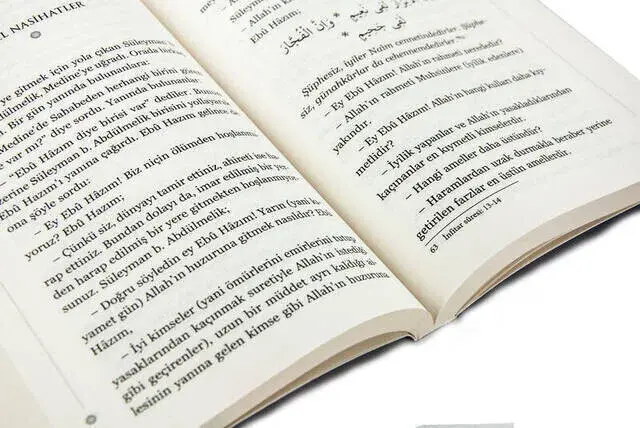 L NASİHATLER
ye gitmek için yola çıkan Süleyman
dülmelik, Medine'ye uğradı. Orada
Bir gün yanında bulunanlara:
Medine'de Sahabeden herhangi birini
var mı?" diye sordu. Yanında bulunanlar:
– Ebû Hâzım diye birisi var" dediler. Bunun
zerine Süleyman b. Abdülmelik birisini yollayarak
Ebû Hazım'ı yanına çağırdı. Ebû Hazım gelince
ona şöyle sordu:
– Ey Ebû Hâzım! Biz niçin ölümden hoşlanmı
yoruz? Ebû Hazım;
– Çünkü siz, dünyayı tamir ettiniz, ahireti ise ha
rap ettiniz. Bundan dolayı da, imar edilmiş bir yer
den harap edilmiş bir yere gitmekten hoşlanmıyor
sunuz. Süleyman b. Abdülmelik;
– Doğru söyledin ey Ebû Hâzım! Yarın (yani kı
yamet gün) Allah'ın huzuruna gitmek nasıldır? Ebû
Hâzım,
– İyi kimseler (yani ömürlerini emirlerini tutup
yasaklarından kaçınmak suretiyle Allah'ın istediği
gibi geçirenler), uzun bir müddet ayrı kaldığı ai
lesinin yanına gelen kimse gibi Allah'ın huzuruna
لَفِي نَعِيمٍ * وَإِنَّ الْفُجَّارَ
لَفِي جَحِيمٍ
Şüphesiz, iyiler Naîm cennetindedirler. Şüphe-
siz, günahkârlar da cehennemdedirler.
– Ey Ebû Hâzım! Allah'ın rahmeti nerededir?
– Allah'ın rahmeti Muhsinlere (iyilik edenlere)
yakındır.
– Ey Ebû Hâzım! Allah'ın hangi kulları daha kıy-
metlidir?
– İyilik yapanlar ve Allah'ın yasakladıklarından
kaçınanlar en kıymetli kimselerdir.
– Hangi ameller daha üstündür?
– Haramlardan uzak durmakla beraber yerine
getirilen farzlar en üstün amellerdir.
63 İnfitar sûresi: 13-14